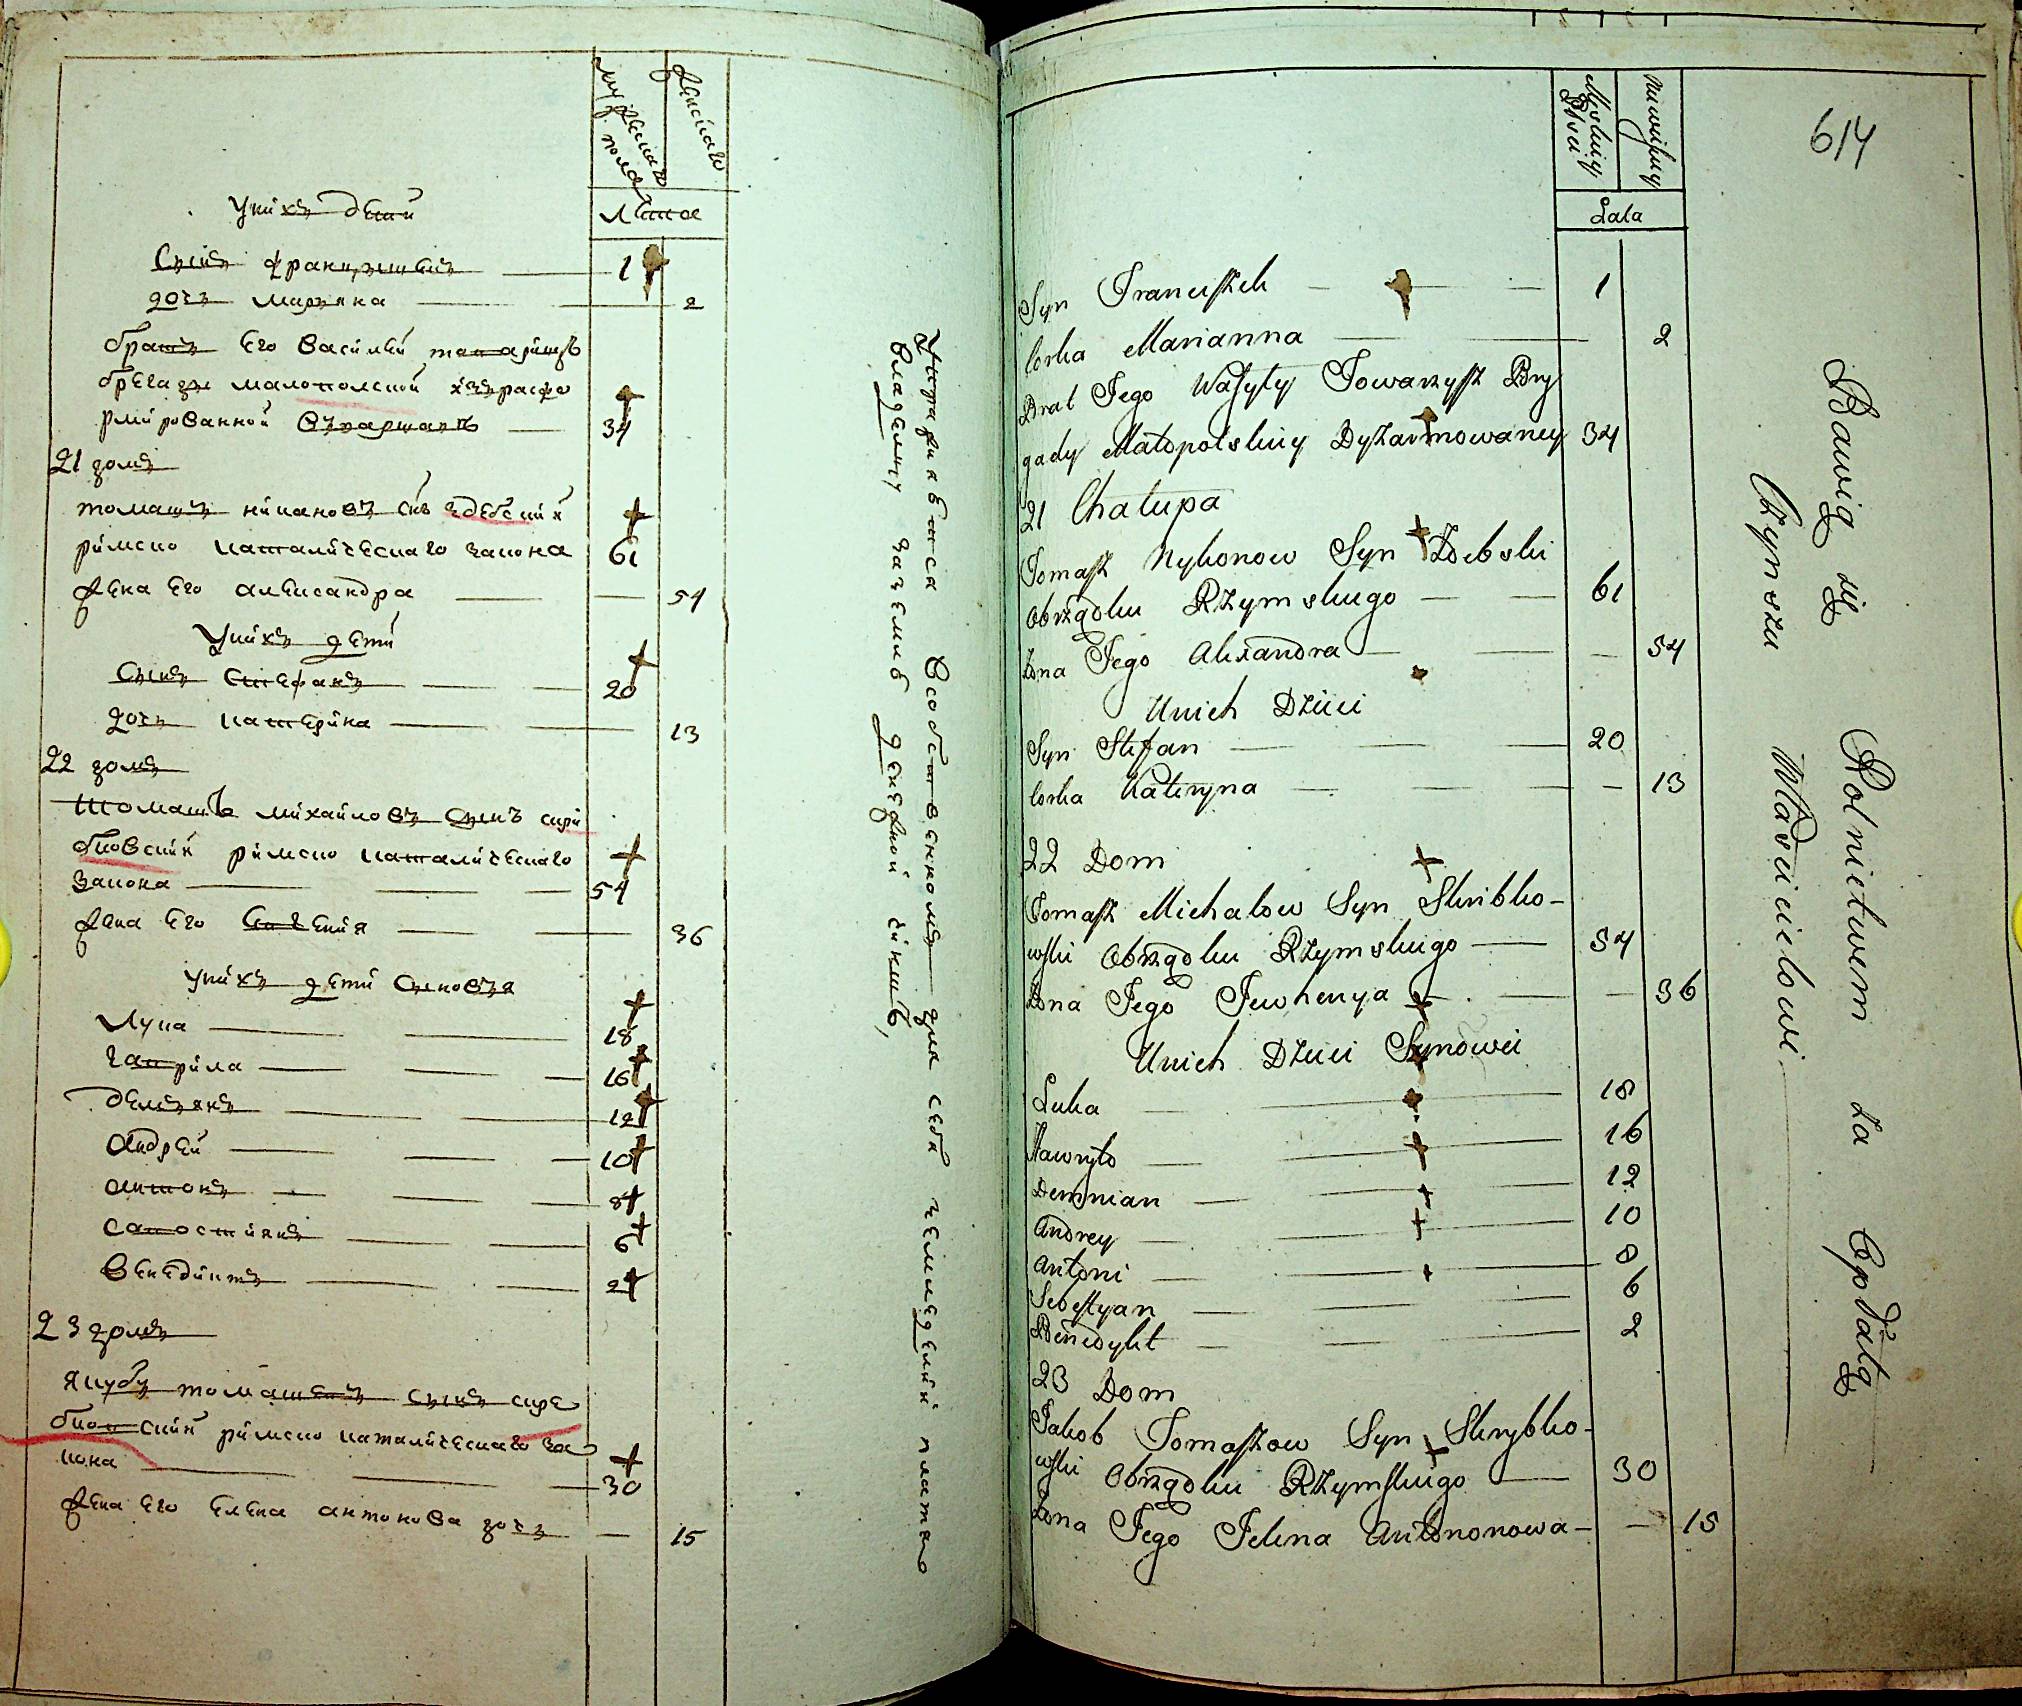 мужескаго пола
женскаго
Летъ
Унихъ дети
Сынъ францишекъ 1
дочь марьяна 2
братъ его Василий товарищъ
брегады малополской
рмированной 34
21 домъ
томашъ никоновъ снъ здебский
римско каталическаго закона 61
жена его александра 54
Унихъ дети
Сынъ Стефанъ 20
дочь катерина 13
22 домъ
томашъ михайловъ сынъ скри
бковский римско каталическаго
закона 54
жена его 36
унихъ дети сыновья
лука 18
гаврила 16
демьянъ 12
андрей 10
антонъ 8
савостиянъ 6
венедиктъ 2
23 домъ
якубъ томашевъ сынъ скре
бковский римско каталическаго за
кона 30
жена его елена антонова дочь 15
Упражняются Собственномъ для себя земледелий платою
владельцу заземлю денежной чиншъ,
614
Męskiey Płci
Niewiesciey
Lata
Syn Franciszek 1
Corka Marianna 2
Brat Jego Wasyly Towarzysz Bry
gady Małopolskiey Dyzarmowaney 34
21 Chałupa
Tomasz Nykonow Syn Zdebski
Obrządku Rzymskiego 61
Żona Jego Alexandra 54
Unich Dzieci
Syn Stefan 20
Corka Kateryna 13
22 Dom
Tomasz Michałow Syn Skribko-
wski Obrządku Rzymskiego 54
Żona Jego Jewhenya 36
Unich Dzieci Synowei
Łuka 18
Hawryło 16
Demnian 12
Andrey 10
Antoni 8
Sebestyan 6
Benedykt 2
23 Dom
Jakob Tomaszow Syn Skrybko-
wski Obrządku Rzymskiego 30
Żona Jego Jelena Antononowa- 15
Bawią się Rolnictwem za Opłatą
Czynszu Właścicielowi